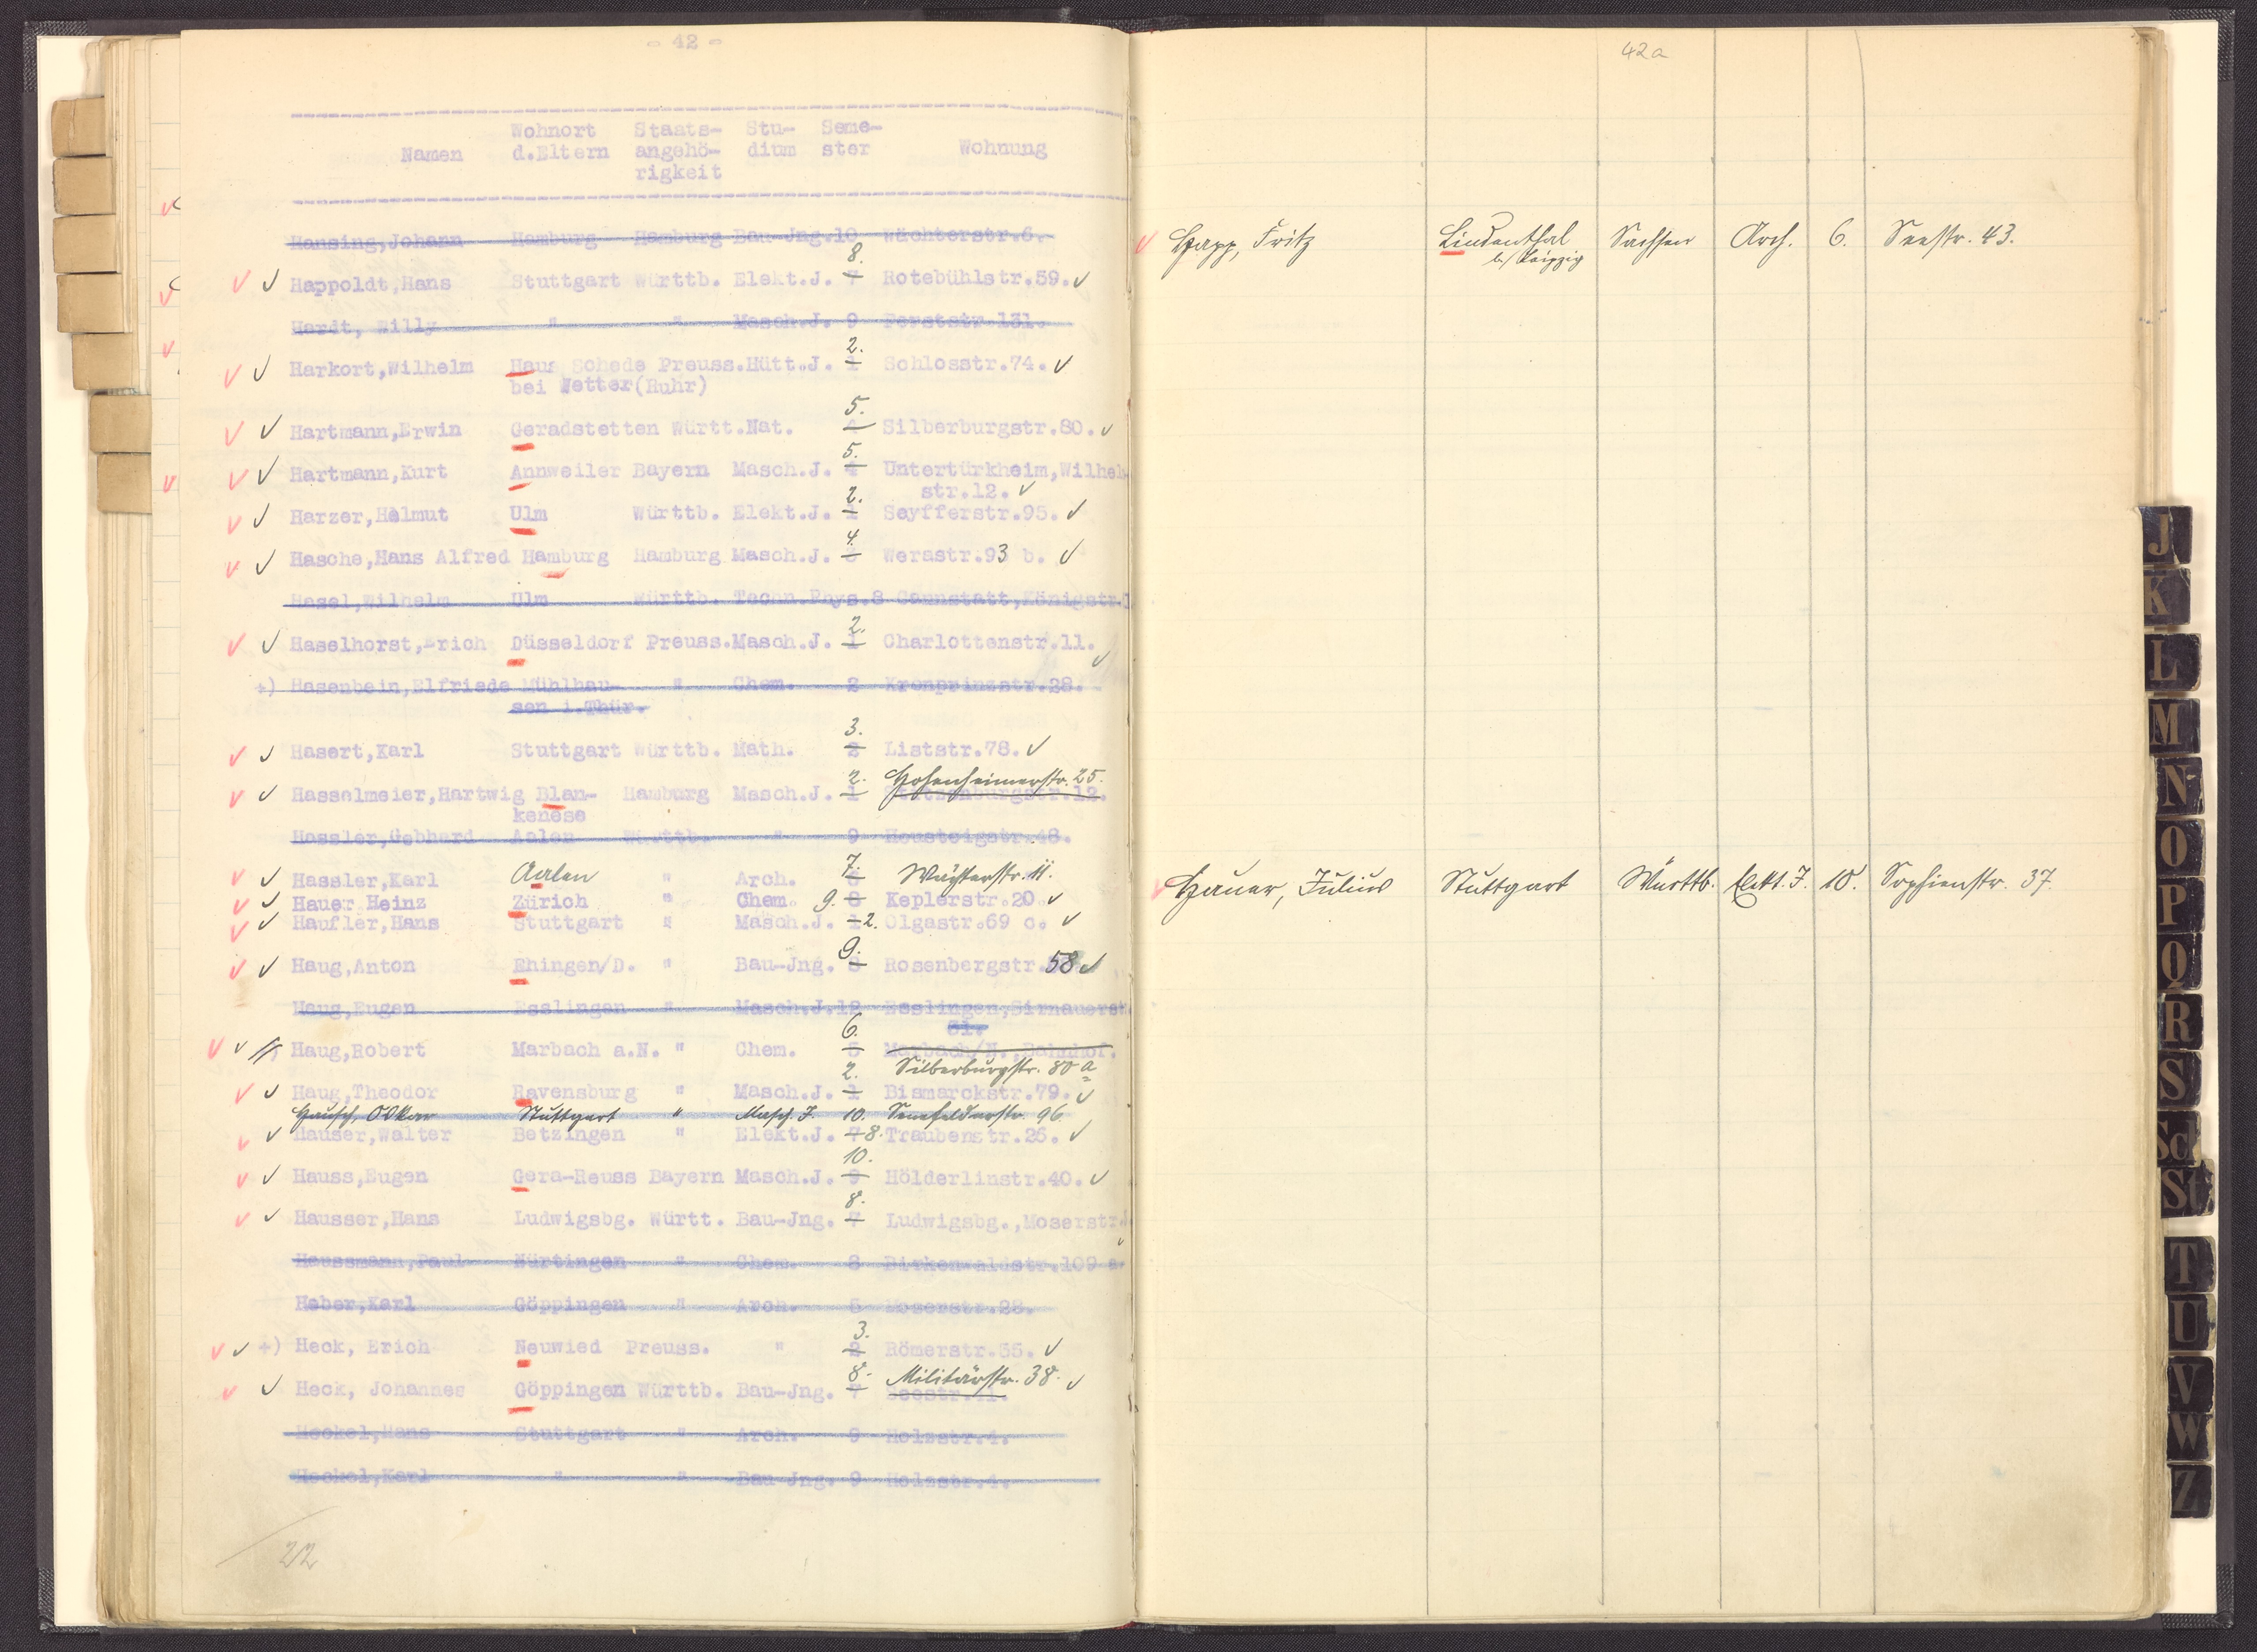 - 42 -
Namen Wohnort d.Eltern Staats- angehö- rigkeit Stu- dium Seme- ster Wohnung
Hansing,Johann Hamburg Hamburg Bau-Jng.10 Wächterstr.6.
8.
Happoldt,Hans Stuttgart Württb. Elekt.J. 7 Rotebühlstr.59.
Hardt, Willy " " Masch.J. 9 Forststr.131.
2.
Harkort,Wilhelm Haus Schede Preuss.Hütt.J. 1 Schlosstr.74.
bei Wetter(Ruhr)
5.
Hartmann,Erwin Geradstetten Württ.Nat. 4 Silberburgstr.80.
5.
Hartmann,Kurt Annweiler Bayern Masch.J. 4 Untertürkheim,Wilhel
str.12.
2.
Harzer,Helmut Ulm Württb. Elekt.J. 1 Seyfferstr.95.
4.
Hasche,Hans Alfred Hamburg Hamburg Masch.J. 3 Werastr.93 b.
Hasel,Wilhelm Ulm Württb. Techn.Phys.8 Cannstatt,Königstr.
2.
Haselhorst,Erich Düsseldorf Preuss.Masch.J. 1 Charlottenstr.11.
+) Hasenbein,Elfriede Mühlhau- " Chem. 2 Kronprinzstr.28.
sen i.Thür.
3.
Hasert,Karl Stuttgart Württb. Math. 2 Liststr.78.
2. Hohenheimerstr. 25.
Hasselmeier,Hartwig Blan- Hamburg Masch.J. 1 12.
kenese
Hassler,Gebhard Aalen Württb. " 9 Heusteigstr.48.
7.
Hassler,Karl Aalen " Arch. 6 Wächterstr. 11.
Hauer Heinz Zürich " Chem. 9. 8 Keplerstr.20.
Haufler,Hans Stuttgart " Masch.J. 1 2. Olgastr.69 c.
9.
Haug,Anton Ehingen/D. " Bau-Jng. 8 Rosenbergstr. 58
Haug,Eugen Esslingen " Masch.J.12 Esslingen,Sirnauerst
6.
Haug,Robert Marbach a.N. " Chem. 5 Marbach/N.,Bahnhof.
2. Silberburgstr. 80 a
Haug,Theodor Ravensburg " Masch.J. 1 Bismarckstr.79.
Hausch, Oskar Stuttgart " Masch. J. 10. Senefelderstr. 96
Hauser,Walter Betzingen " Elekt.J. 7 8. Traubenstr.26.
10.
Hauss,Eugen Gera-Reuss Bayern Masch.J. 9 Hölderlinstr.40.
8.
Hausser,Hans Ludwigsbg. Württ. Bau-Jng. 7 Ludwigsbg.,Moserstr.
Haussmann,Paul Nürtingen " Chem. 8 Birkenwaldstr.109 a.
Heber,Karl Göppingen " Arch. Moserstr.28.
3.
+) Heck, Erich Neuwied Preuss. " 2 Römerstr.55.
8. Militärstr. 38.
Heck, Johannes Göppingen Württb. Bau-Jng. 7 Seestr.
Heckel,Hans Stuttgart " Arch. Holzstr.4.
Heckel,Karl " " Bau-Jng. 9 Holzstr.4.
22
42a
Happ, Fritz Lindenthal Sachsen Arch. 6. Seestr. 43.
b/ Leipzig
Hauer, Julius Stuttgart Württb. Elekt. J. 10. Sophienstr. 37.
J
K
L
M
N
O
P
Q
R
S
Sch
St
T
U
V
W
Z